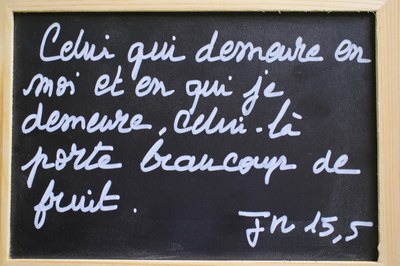 Celui qui demeure en
moi et en qui je
demeure, celui-là
porte beaucoup de
fruit.
Jn 15,5